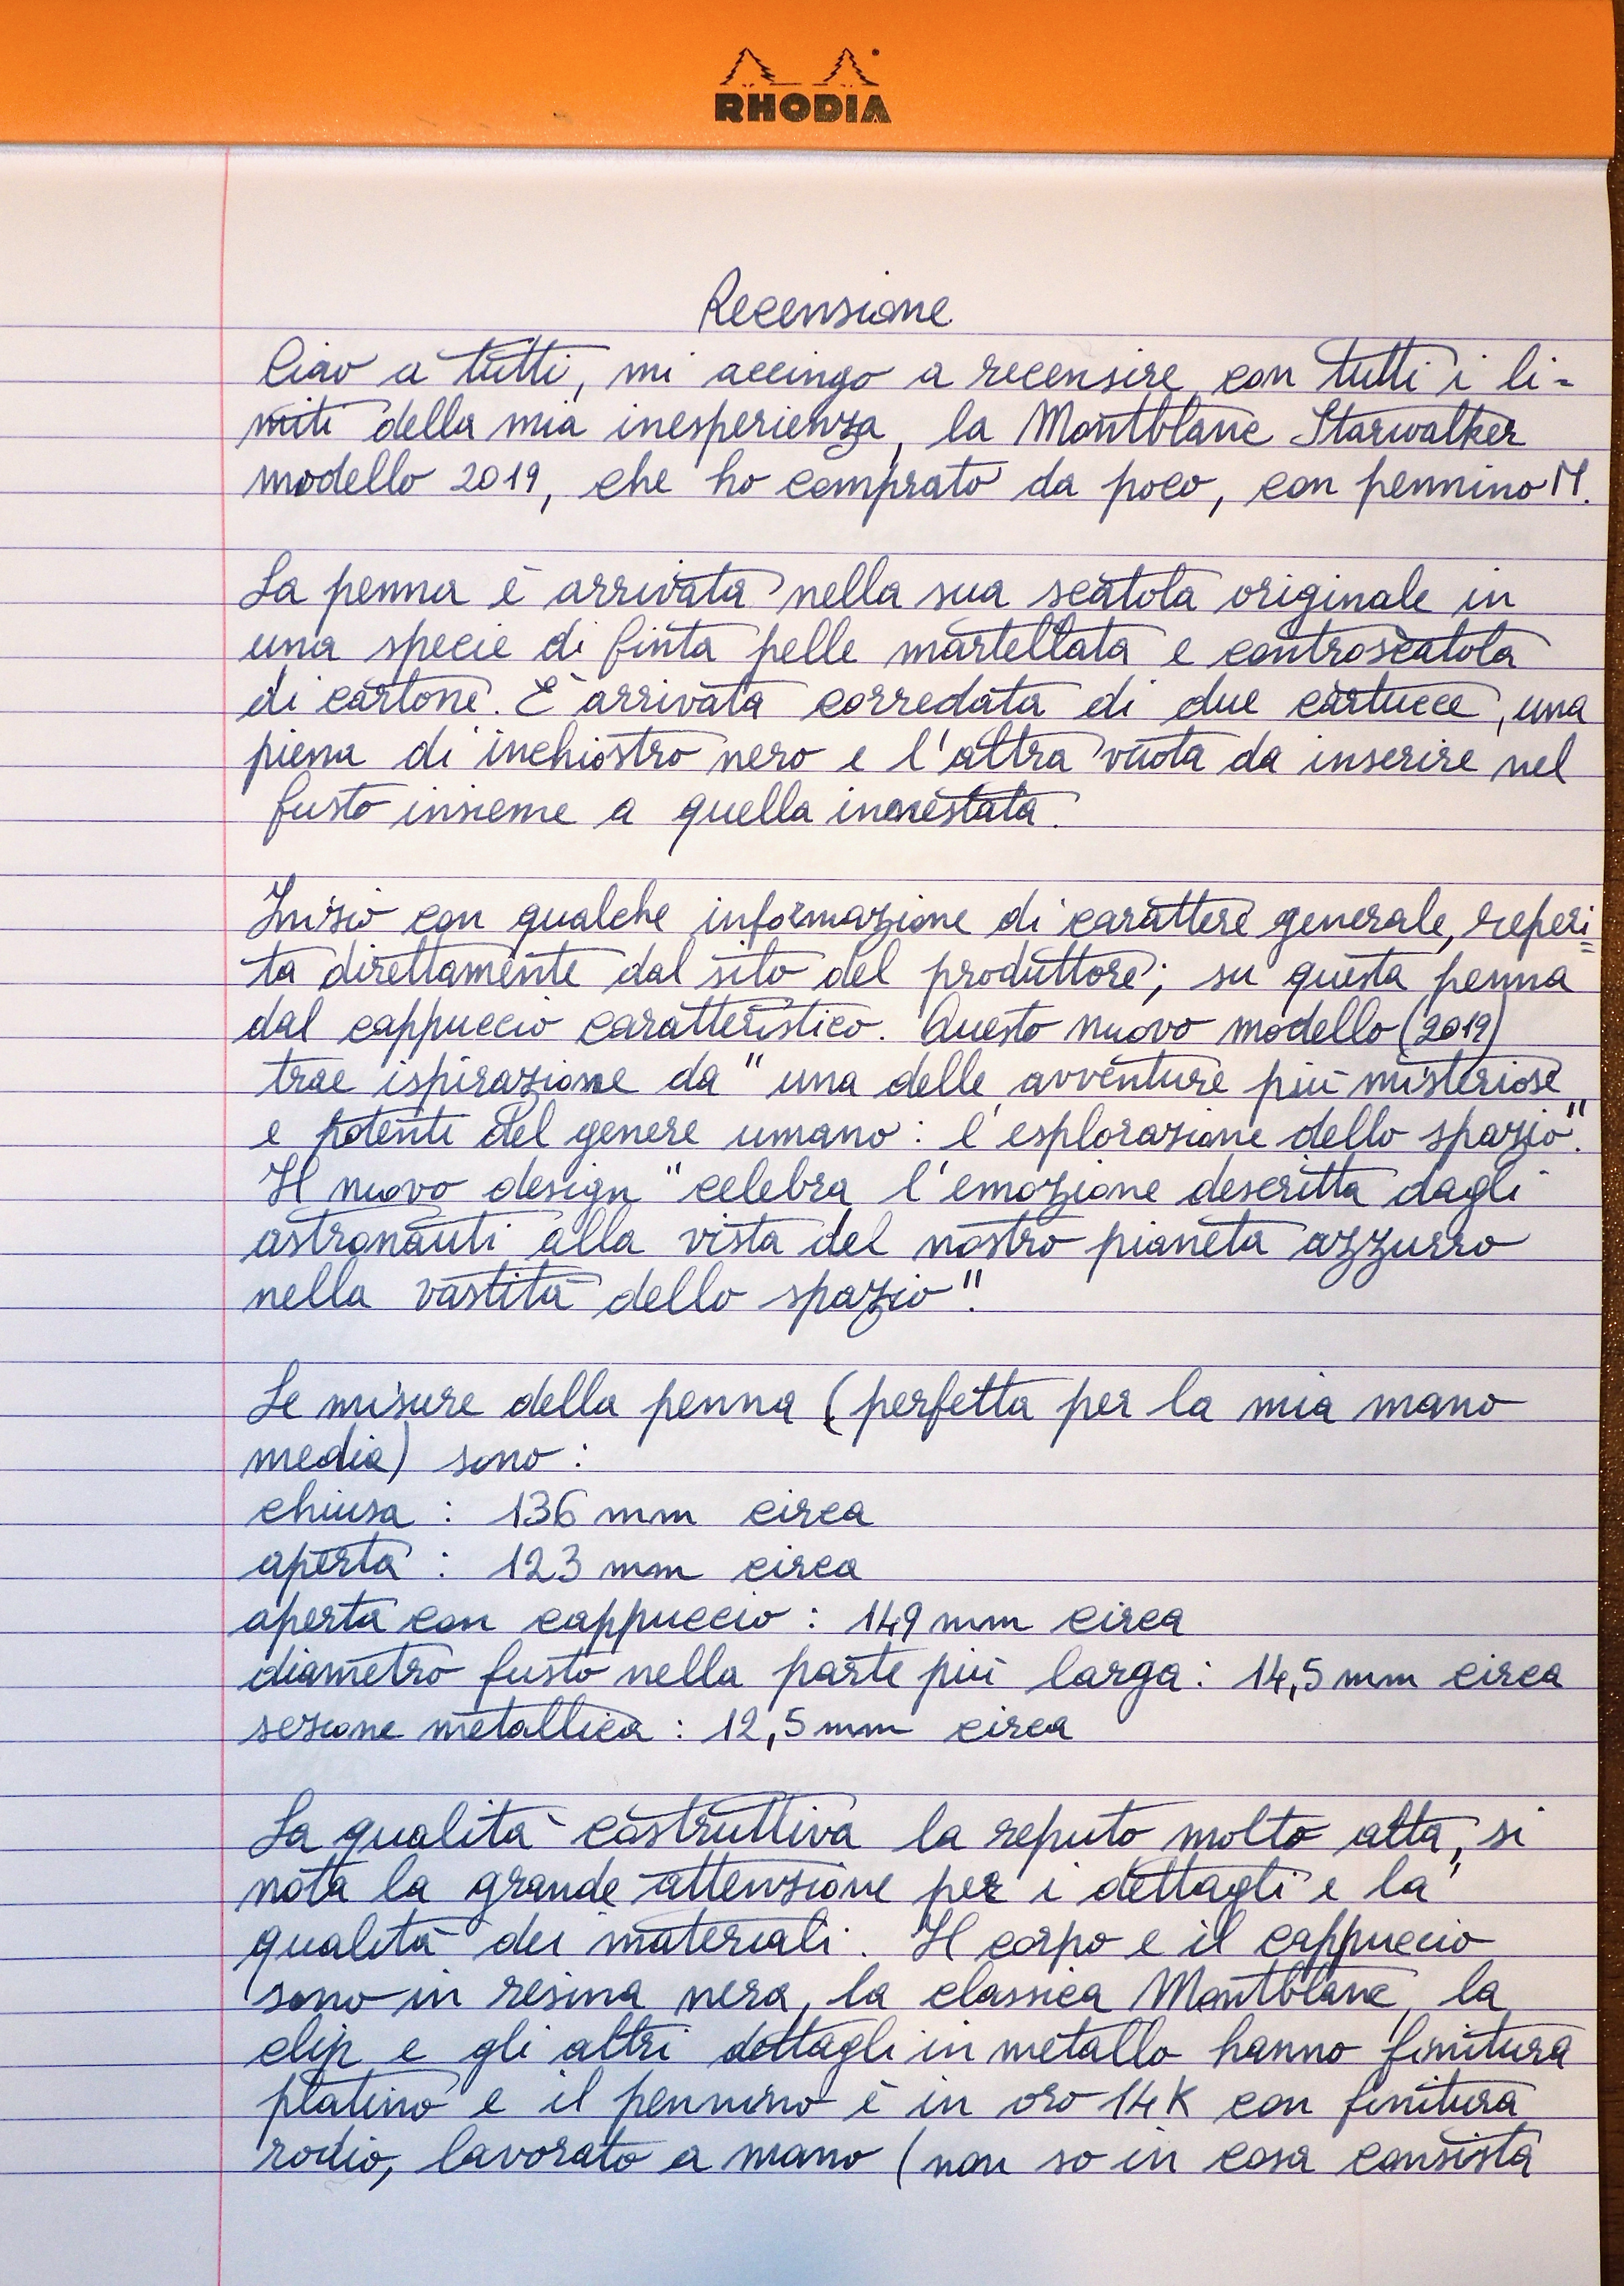 RHODIA
Recensione
Ciao a tutti, mi accingo a recensire, con tutti i li=
miti della mia inesperienza, la Montblanc Starwalker
modello 2019, che ho comprato da poco, con pennino M.
La penna è arrivata nella sua scatola originale in
una specie di finta pelle martellata e controscatola
di cartone. È arrivata corredata di due cartucce, una
piena di inchiostro nero e l'altra vuota da inserire nel
fusto insieme a quella innestata.
Inizio con qualche informazione di carattere generale, reperi=
ta direttamente dal sito del produttore; su questa penna
dal cappuccio caratteristico. Questo nuovo modello (2019)
trae ispirazione da "una delle avventure più misteriose
e potenti del genere umano: l'esplorazione dello spazio".
Il nuovo design "celebra l'emozione descritta dagli
astronauti alla vista del nostro pianeta azzurro
nella vastità dello spazio".
Le misure della penna (perfetta per la mia mano
media) sono:
chiusa: 136 mm circa
aperta: 123 mm circa
aperta con cappuccio: 149 mm circa
diametro fusto nella parte più larga: 14,5 mm circa
sezione metallica: 12,5 mm circa
La qualità costruttiva la reputo molto alta, si
nota la grande attenzione per i dettagli e la
qualità dei materiali. Il corpo e il cappuccio
sono in resina nera, la classica Montblanc, la
clip e gli altri dettagli in metallo hanno finitura
platino e il pennino è in oro 14K con finitura
rodio, lavorato a mano (non so in cosa consista